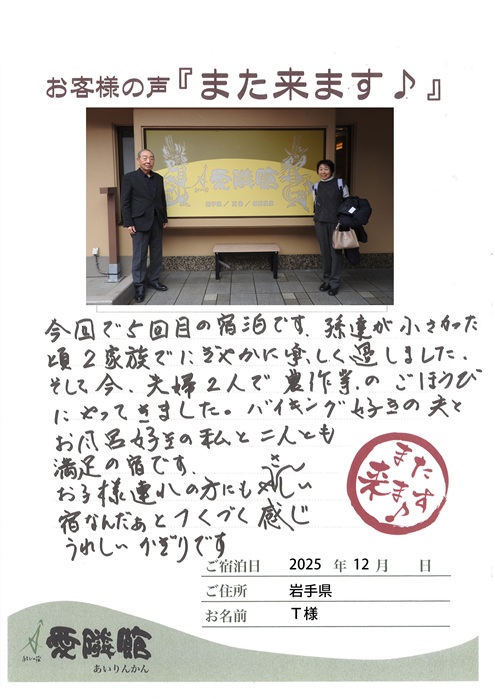 お客様の声『また来ます♪』
愛隣館
今回で5回目の宿泊です、孫達が小さかった
頃2家族でにぎやかに楽しく過しました、
そして今、夫婦2人で農作業のごほうび
にやってきました。バイキング好きの夫と
お風呂好きの私と二人とも
満足の宿です。
お子様連れの方にもやさしい
宿なんだぁとつくづく感じ
うれしいかぎりです
また
来ます♪
ご宿泊日 2025 年 12 月 日
ご住所 岩手県
お名前 T様
愛隣館
あいりんかん